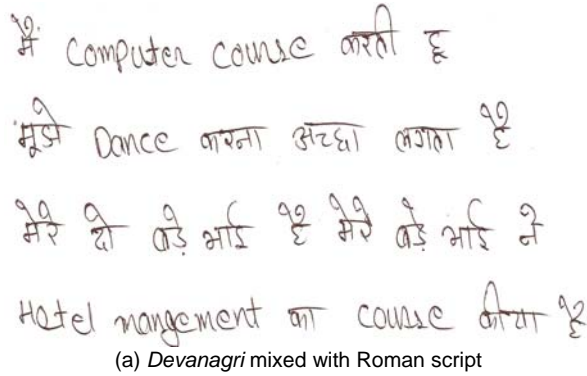 मैं computer course करती हू
मूझे Dance करना अच्छा लगता है
मेरे दो बड़े भाई है मेरे बड़े भाई ने
Hotel mangement का course कीया है
(a) Devanagri mixed with Roman script